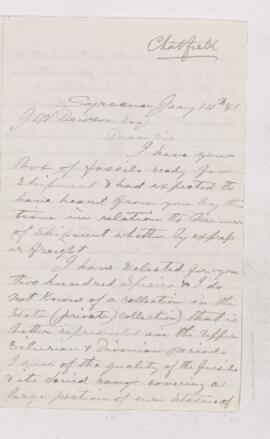 Chatfield
Syracuse Jany 14th 81
J W Dawson Esq
Dear Sir
I have your
Box of fossils ready for
Shipment & had expected to
have heard from you by this
time in relation to manner
of Shipment whether by express
or freight.
I have selected for you
two hundred Species & I do
not know of a collection in the
State (private) collection) that is
better represented in the upper
Silurian & Divonian periods
I speak of the quality of the fossils
& its range covering a
large portion of our State, of